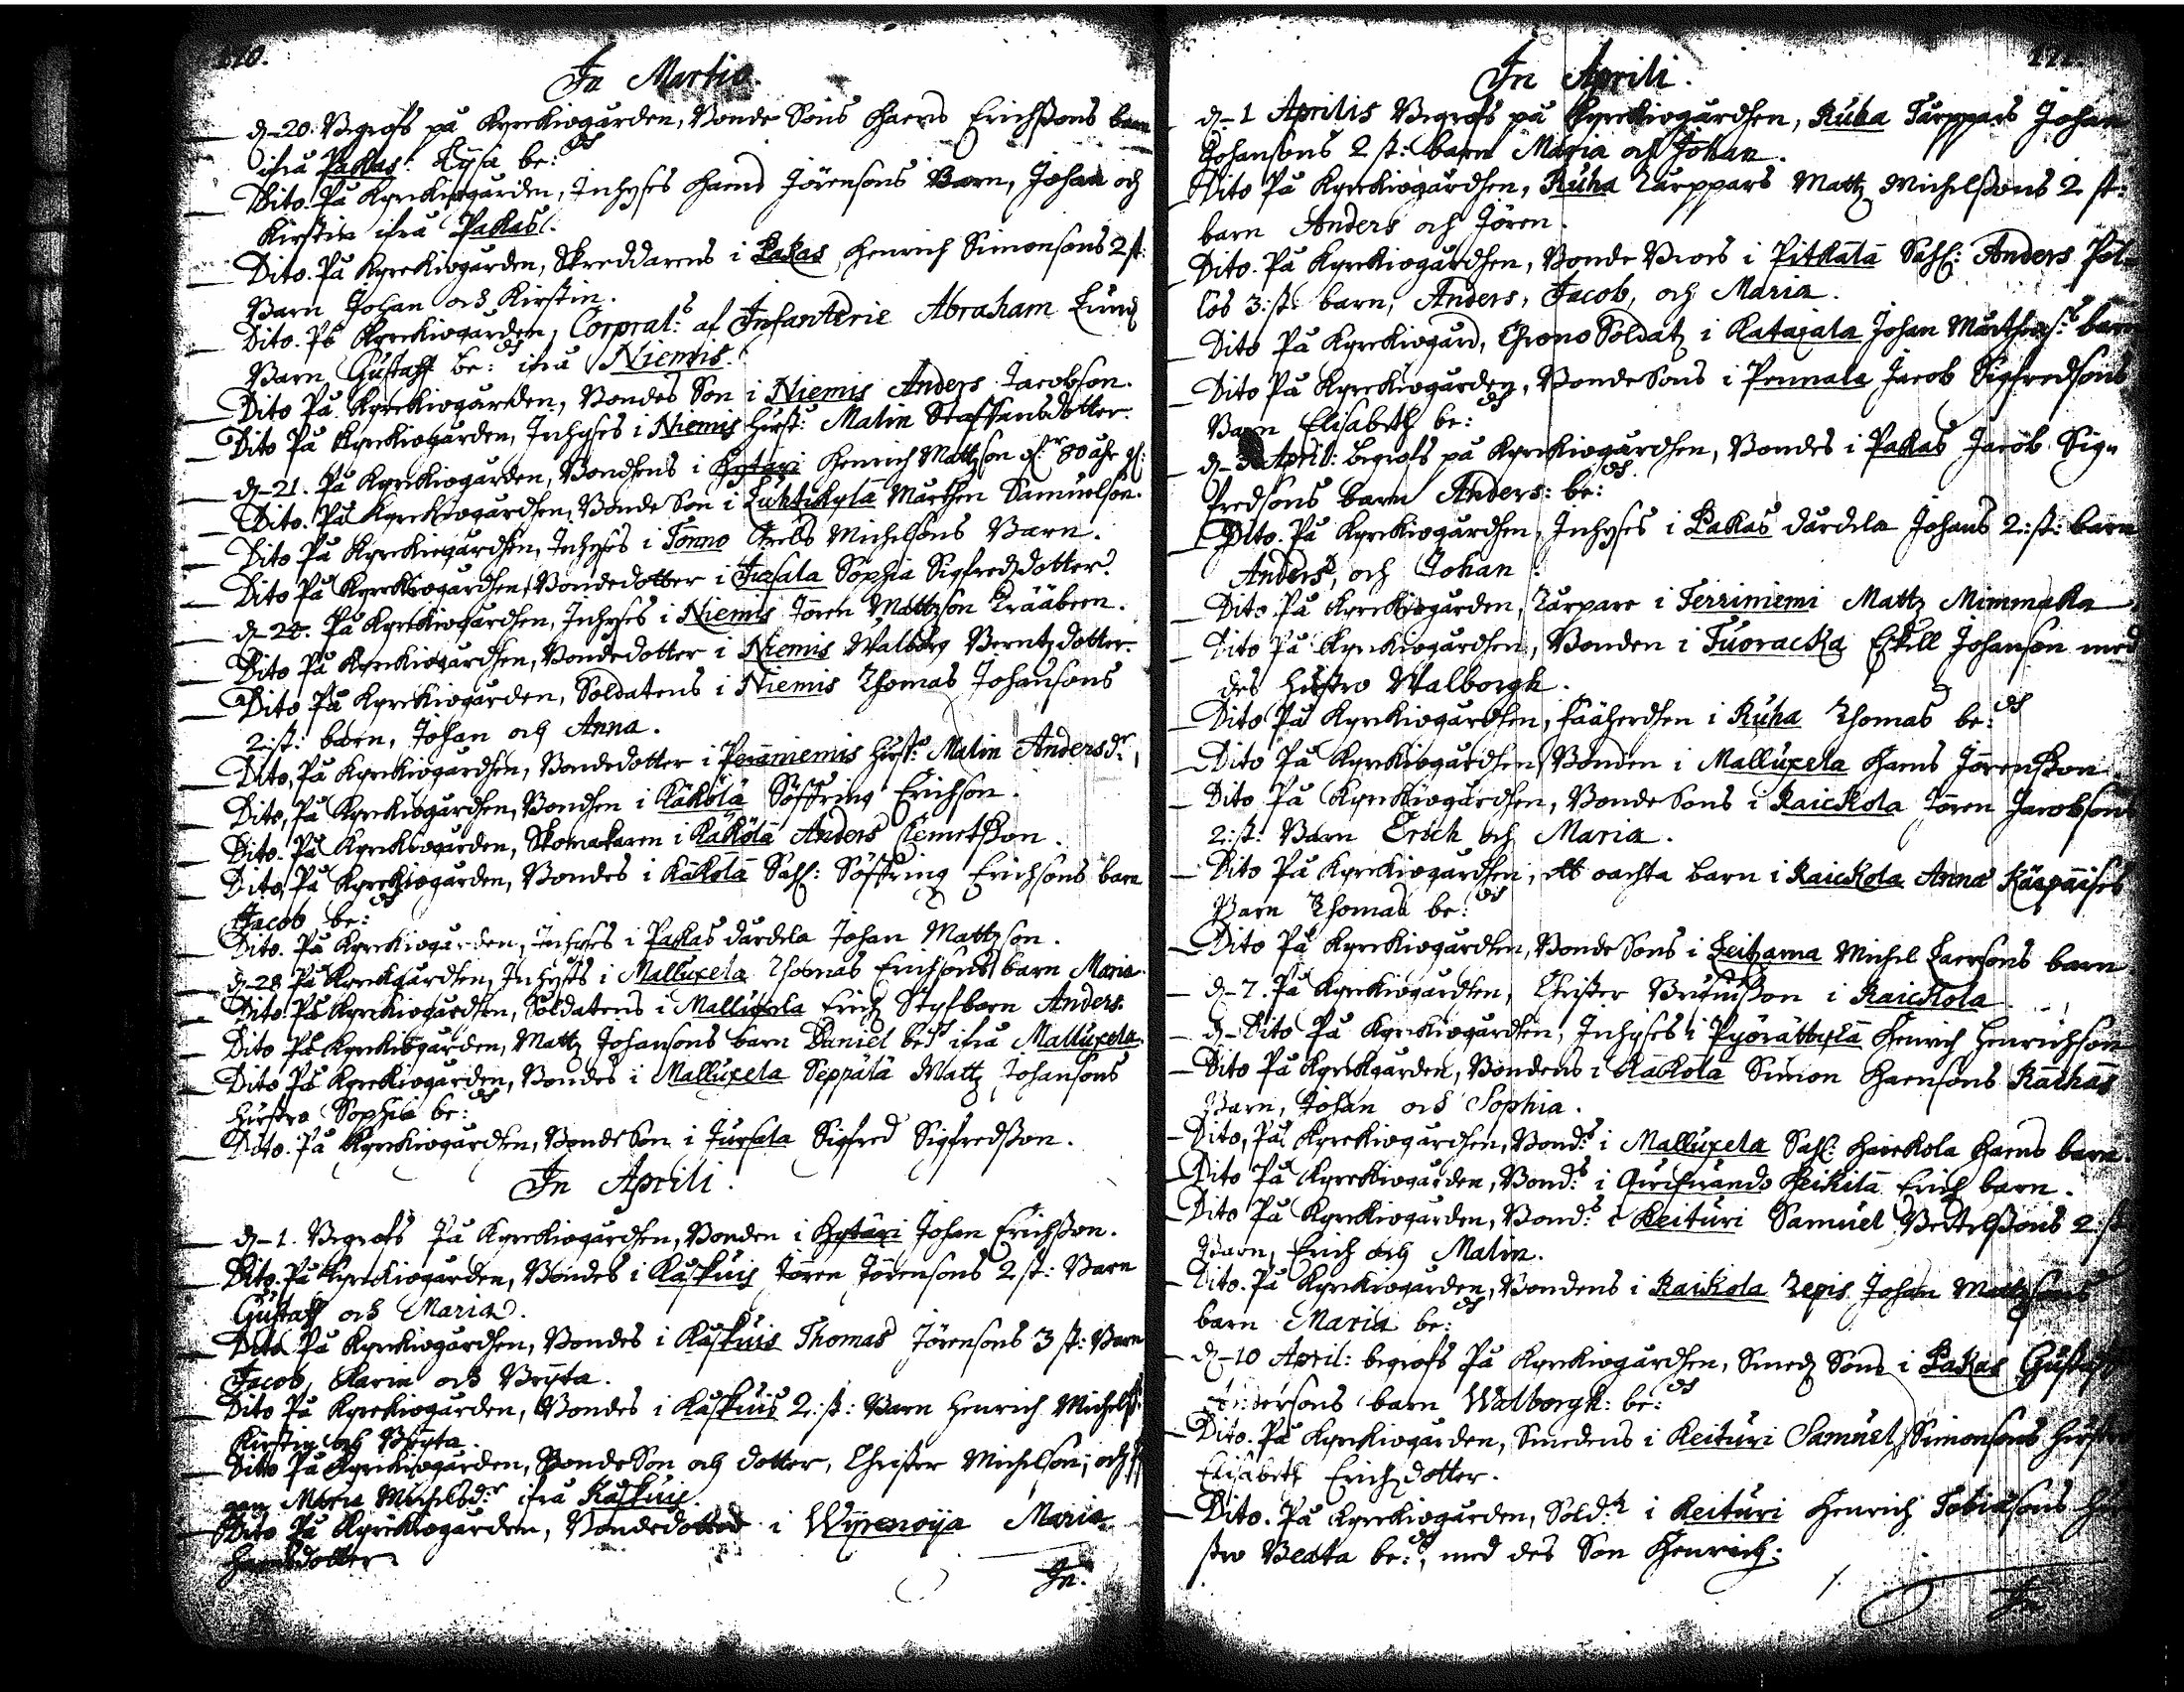 In Martio.
d. 20. Begrofs på Kyrckiogården, Bonde Sons Hans Erichßons barn
ifrå Pakas: Lysa be:
Dito. På Kyrckiogården, Inhyses Hans Jörensons Barn, Johan och
Kirstin ifrå Pakas.
Dito. På Kyrckiogården, Skreddarens i Pakas, Henrich Simonsons 2 st:
Barn Johan och Kirstin.
Dito. På Kyrckiogården, Corprals: af Infanterie Abraham Lund
Barn Gustaff be: ifrå Niemis.
Dito På Kyrckiogården, Bondes Son i Niemis Anders Jacobson.
Dito På Kyrckiogården, Inhyses i Niemis Hust: Malin Staffansdotter.
d. 21. På Kyrckiogården, Bondhens i Hytari Henrich Mattzson 80 åhr
Dito. På Kyrckiogårdhen, Bonde Son i Luhtikylä Mårthen Samuelson.
Dito På Kyrckiogårdhen, Inhyses i Tönno Michelsons Barn.
Dito På Kyrckiogårdhen, Bondedotter i Jursala Sophia Sigfredzdotter.
d. På Kyrckiogårdhen, Inhyses i Niemis Jören Mattzson
Dito På Kyrckiogårdhen, Bondedotter i Niemis Walborg Berntzdotter.
Dito På Kyrckiogården, Soldatens i Niemis Thomas Johansons
2: st: barn, Johan och Anna.
Dito, På Kyrckiogårdhen, Bondedotter i Peräniemis Hust: Malin Andersdr
Dito, På Kyrckiogårdhen, Bondhen i Käkölä Söffring Erichson.
Dito. På Kyrckiogården, Skomakaren i Käkölä Anders Clemetßon.
Dito, På Kyrckiogården, Bondes i Käkölä Sahl: Söffring Erichsons barn
Jacob be:
Dito. På Kyrckiogården, Inhyses i Pakas dårdela Johan Mattzson.
d. 28 På Kyrckgårdhen, Inhyses i Mallusela Thomas Erichsons barn Maria
Dito På Kyrckiogårdhen, Soldatens i Mallusela Erich Styfbarn Anders.
Dito På Kyrckiogården, Mattz Johansons barn Daniel be: ifrå Mallusela.
Dito På Kyrckiogården, Bondes i Mallusela Seppälä Mattz Johansons
Hustro Sophia be:
Dito. På Kyrckiogårdhen, Bonde Son i Jursala Sigfred Sigfredßon.
In Aprili.
d. 1. Begrofs På Kyrckiogårdhen, Bonden i Hytäri Johan Erichßon.
Dito. På Kyrckiogården, Bondes i Kaskuis Jören Jörensons 2 st: Barn
Gustaff och Maria.
Dito På Kyrckiogårdhen, Bondes i Kaskuis Thomas Jörensons 3 st: Barn
Jacob, Karin och Bryta.
Dito På Kyrckiogården, Bondes i Kaskuis 2: st: Barn Henrich Michelß:
Kirstin och Bryta.
Dito På Kyrckiogården, Bonde Son och dotter, Christer Michelson, och
Maria Michelsdr ifrå Kaskuis.
Dito På Kyrckiogården, Bondedotter i Wyrenoija Maria
Hansdotter.
In.
In Aprili.
d. 1 Aprilis Begrofs på Kyrckiogårdhen, Ruha Tårppars Johan
Johansons 2 st: barn Maria och Johan.
Dito På Kyrckiogårdhen, Ruha Tårppars Mattz Michelßons 2 st:
barn Anders och Jören.
Dito. På Kyrckiogårdhen, Bonde i Pitkälä Sahl: Anders Pål-
lös 3: st: barn, Anders, Jacob, och Maria.
Dito På Kyrckiogård, Chrono Soldatz i Katajala Johan Mårthens: barn
Dito På Kyrckiogården, Bonde Sons i Pennala Jacob Sigfredsons
Barn Elisabeth be:
d. April: begrofs på Kyrckiogårdhen, Bondes i Pakas Jacob Sig-
fredsons barn Anders: be:
Dito. På Kyrckiogårdhen, Inhyses i Pakas dårdela Johans 2: st: barn
Anders, och Johan
Dito. På Kyrckiogården, Tårpare i Terriniemi Mattz Mimmaka
Dito På Kyrckiogårdhen, Bonden i Tuoracka Eskill Johanson med
des Hustro Walborgh.
Dito På Kyrckiogårdhen, Fäåherdhen i Ruha Thomas be:
Dito På Kyrckiogårdhen Bonden i Mallusela Hans Jörenßon
Dito På Kyrckiogårdhen, Bonde Sons i Raickola Jören Jacobsons
2: st: Barn Erich och Maria.
Dito På Kyrckiogårdhen, ett oächta barn i Raickola Anna
Barn Thomas be:
Dito På Kyrckiogårdhen, Bonde Sons i Michel Larsons barn
d. 7. På Kyrckiogårdhen, Christer i Raickola.
d. Dito På Kyrckiogårdhen, Inhyses i Pyörättylä Henrich Henrichson
Dito På Kyrckgården, Bondens i Käkölä Simon Hansons
Barn, Johan och Sophia.
Dito, På Kyrckiogårdhen, Bonds: i Mallusela Sahl: Haickola Hans barn.
Dito På Kyrckiogården, Bonds: i Heikilä Erich barn.
Dito På Kyrckiogården, Bonds: i Keituri Samuel Bertelßons 2: st
Barn, Erich och Malin.
Dito. På Kyrckiogården, Bondens i Raikola Johan Mattzsons
barn Maria be:
d. 10 April: begrofs På Kyrckiogårdhen, Smedz Sons i Pakas Gustaff
Andersons barn Walborgh: be:
Dito. På Kyrckiogården, Smedens i Keituri Samuel Simonsons Hustro
Elisabeth Erichzdotter.
Dito. På Kyrckiogården, Sold: i Keituri Henrich Tobiasons Hu
stro Beata be:, med des Son Henrich.